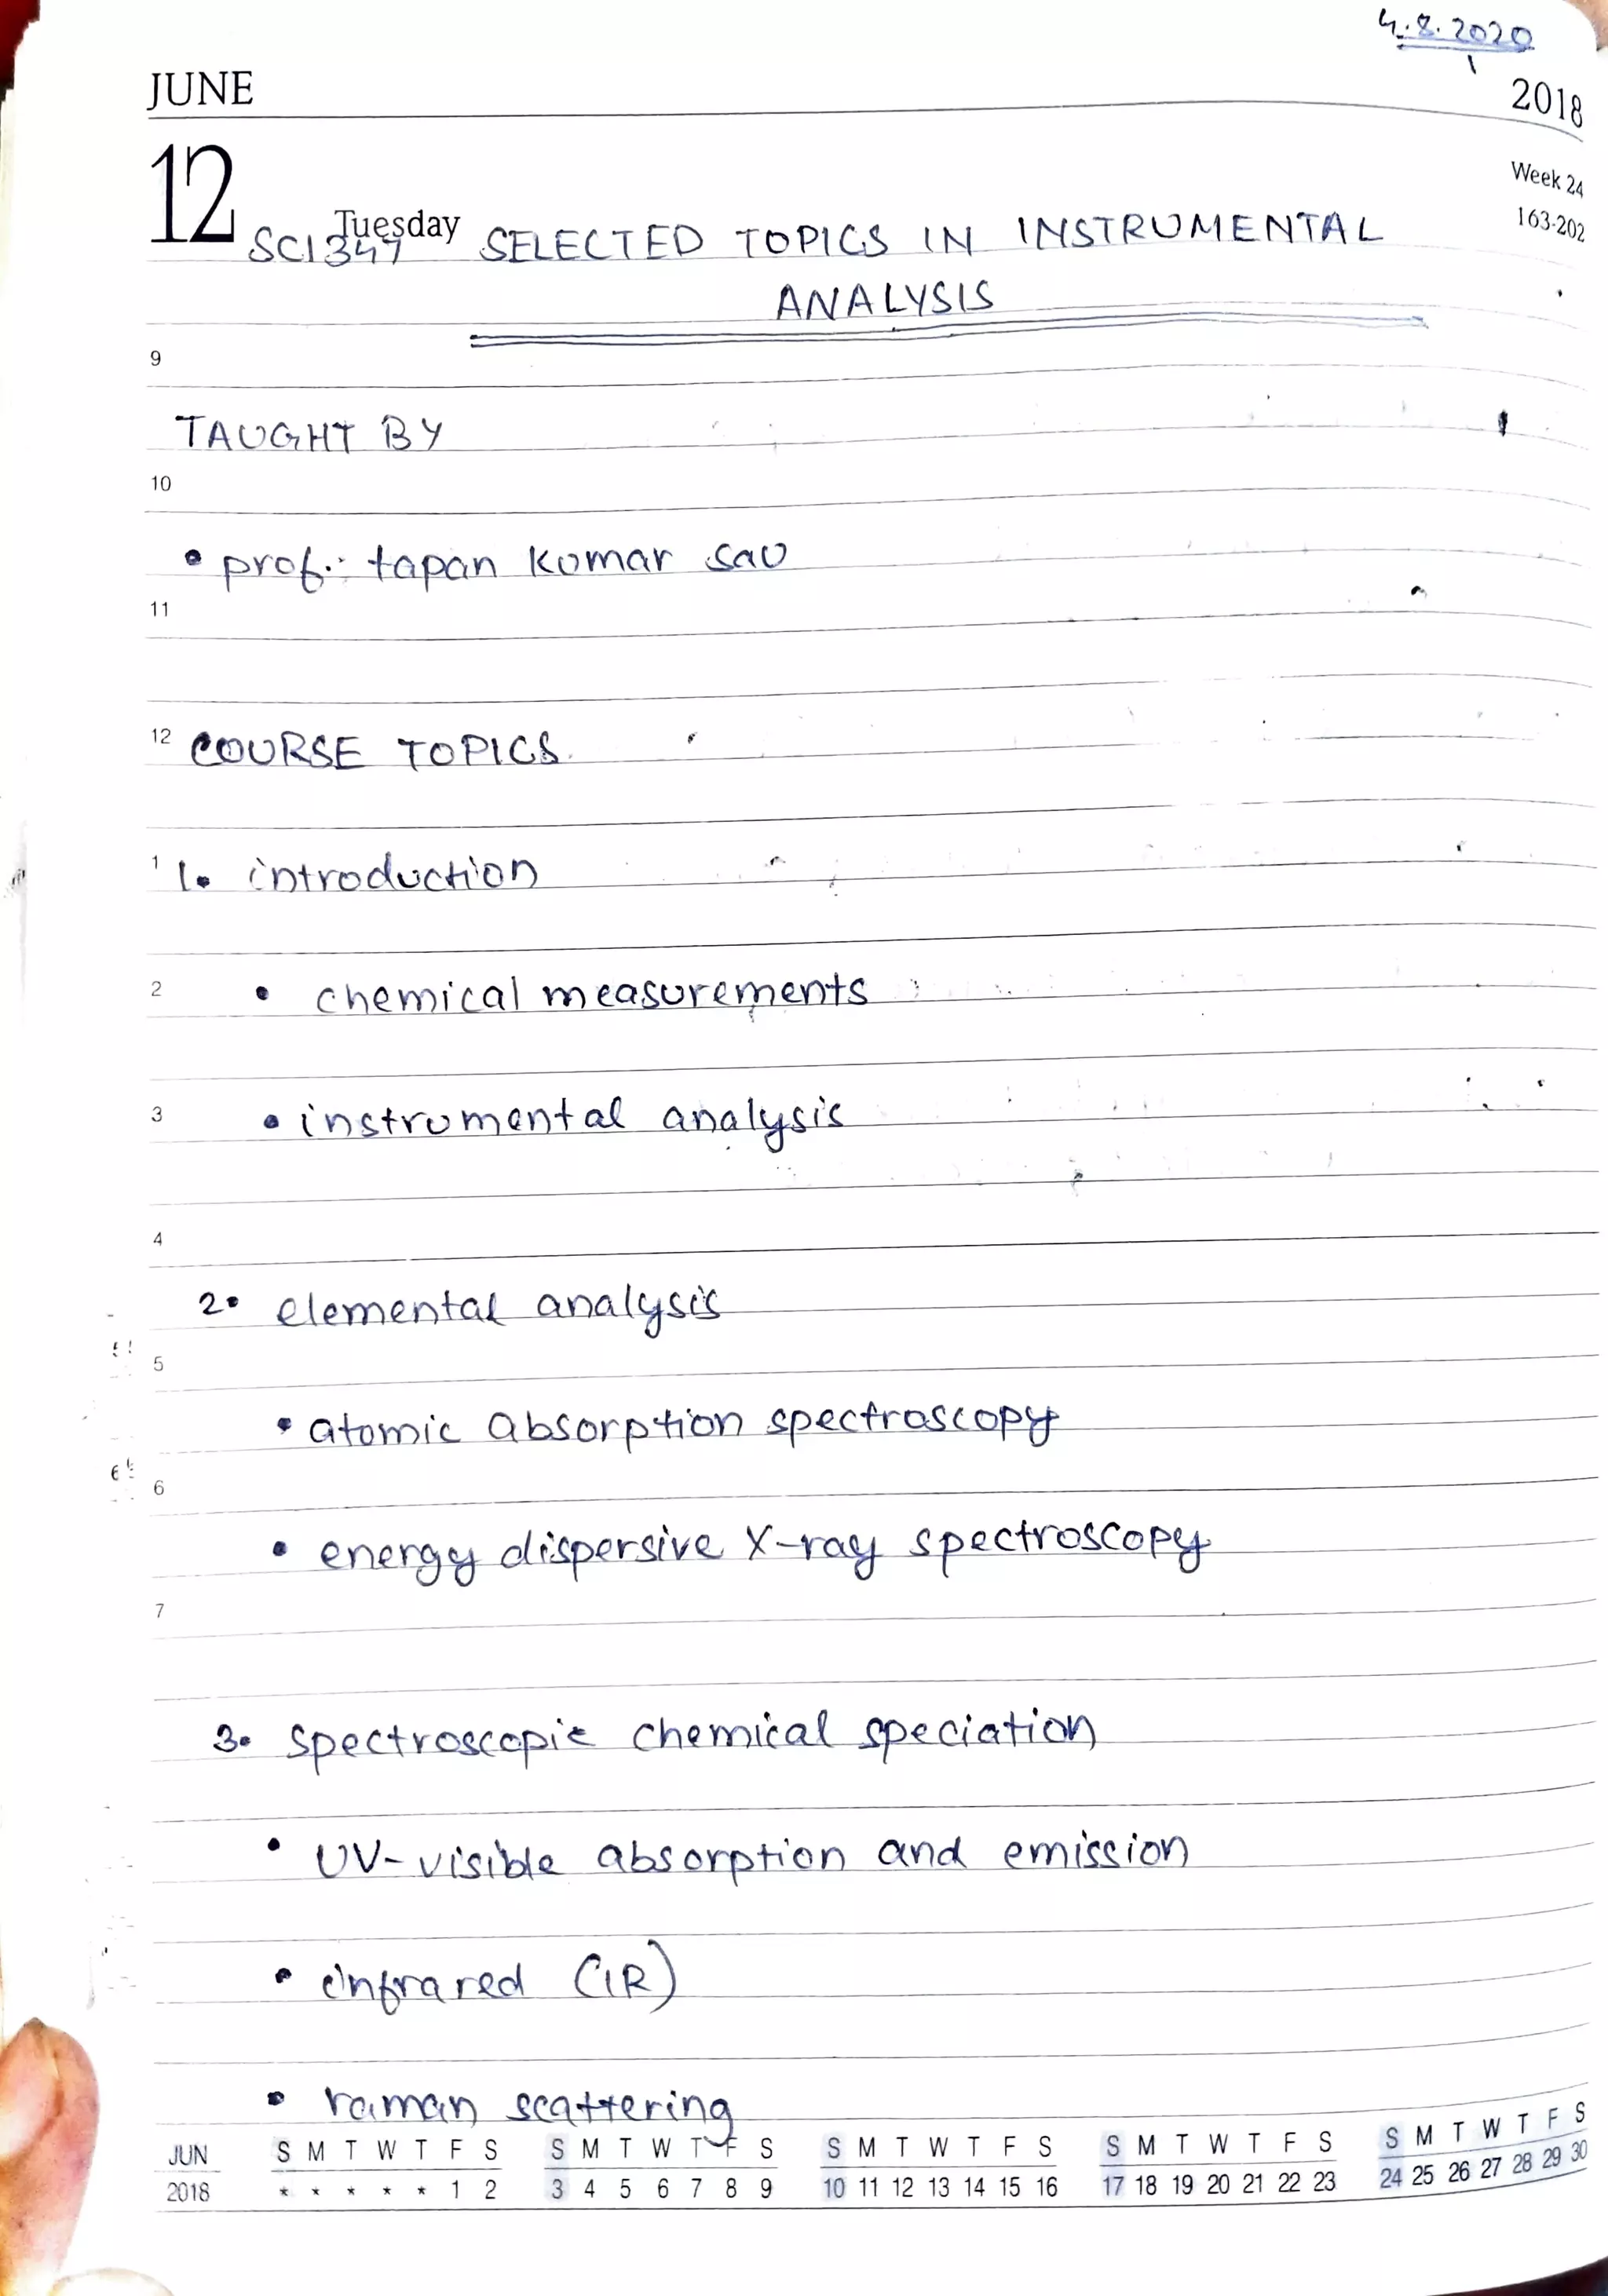 4.8.2020
JUNE 2018
12 Tuesday Week 24
163-202
SCI347 SELECTED TOPICS IN INSTRUMENTAL
ANALYSIS
9
TAUGHT BY
10
• prof.: tapan kumar sau
11
12 COURSE TOPICS
1 1. introduction
2 • chemical measurements
3 • instrumental analysis
4
2. elemental analysis
5
• atomic absorption spectroscopy
6
• energy dispersive X-ray spectroscopy
7
3. spectroscopic chemical speciation
• UV-visible absorption and emission
• infrared (IR)
• raman scattering
JUN S M T W T F S S M T W T F S S M T W T F S S M T W T F S S M T W T F S
2018 * * * * * 1 2 3 4 5 6 7 8 9 10 11 12 13 14 15 16 17 18 19 20 21 22 23 24 25 26 27 28 29 30